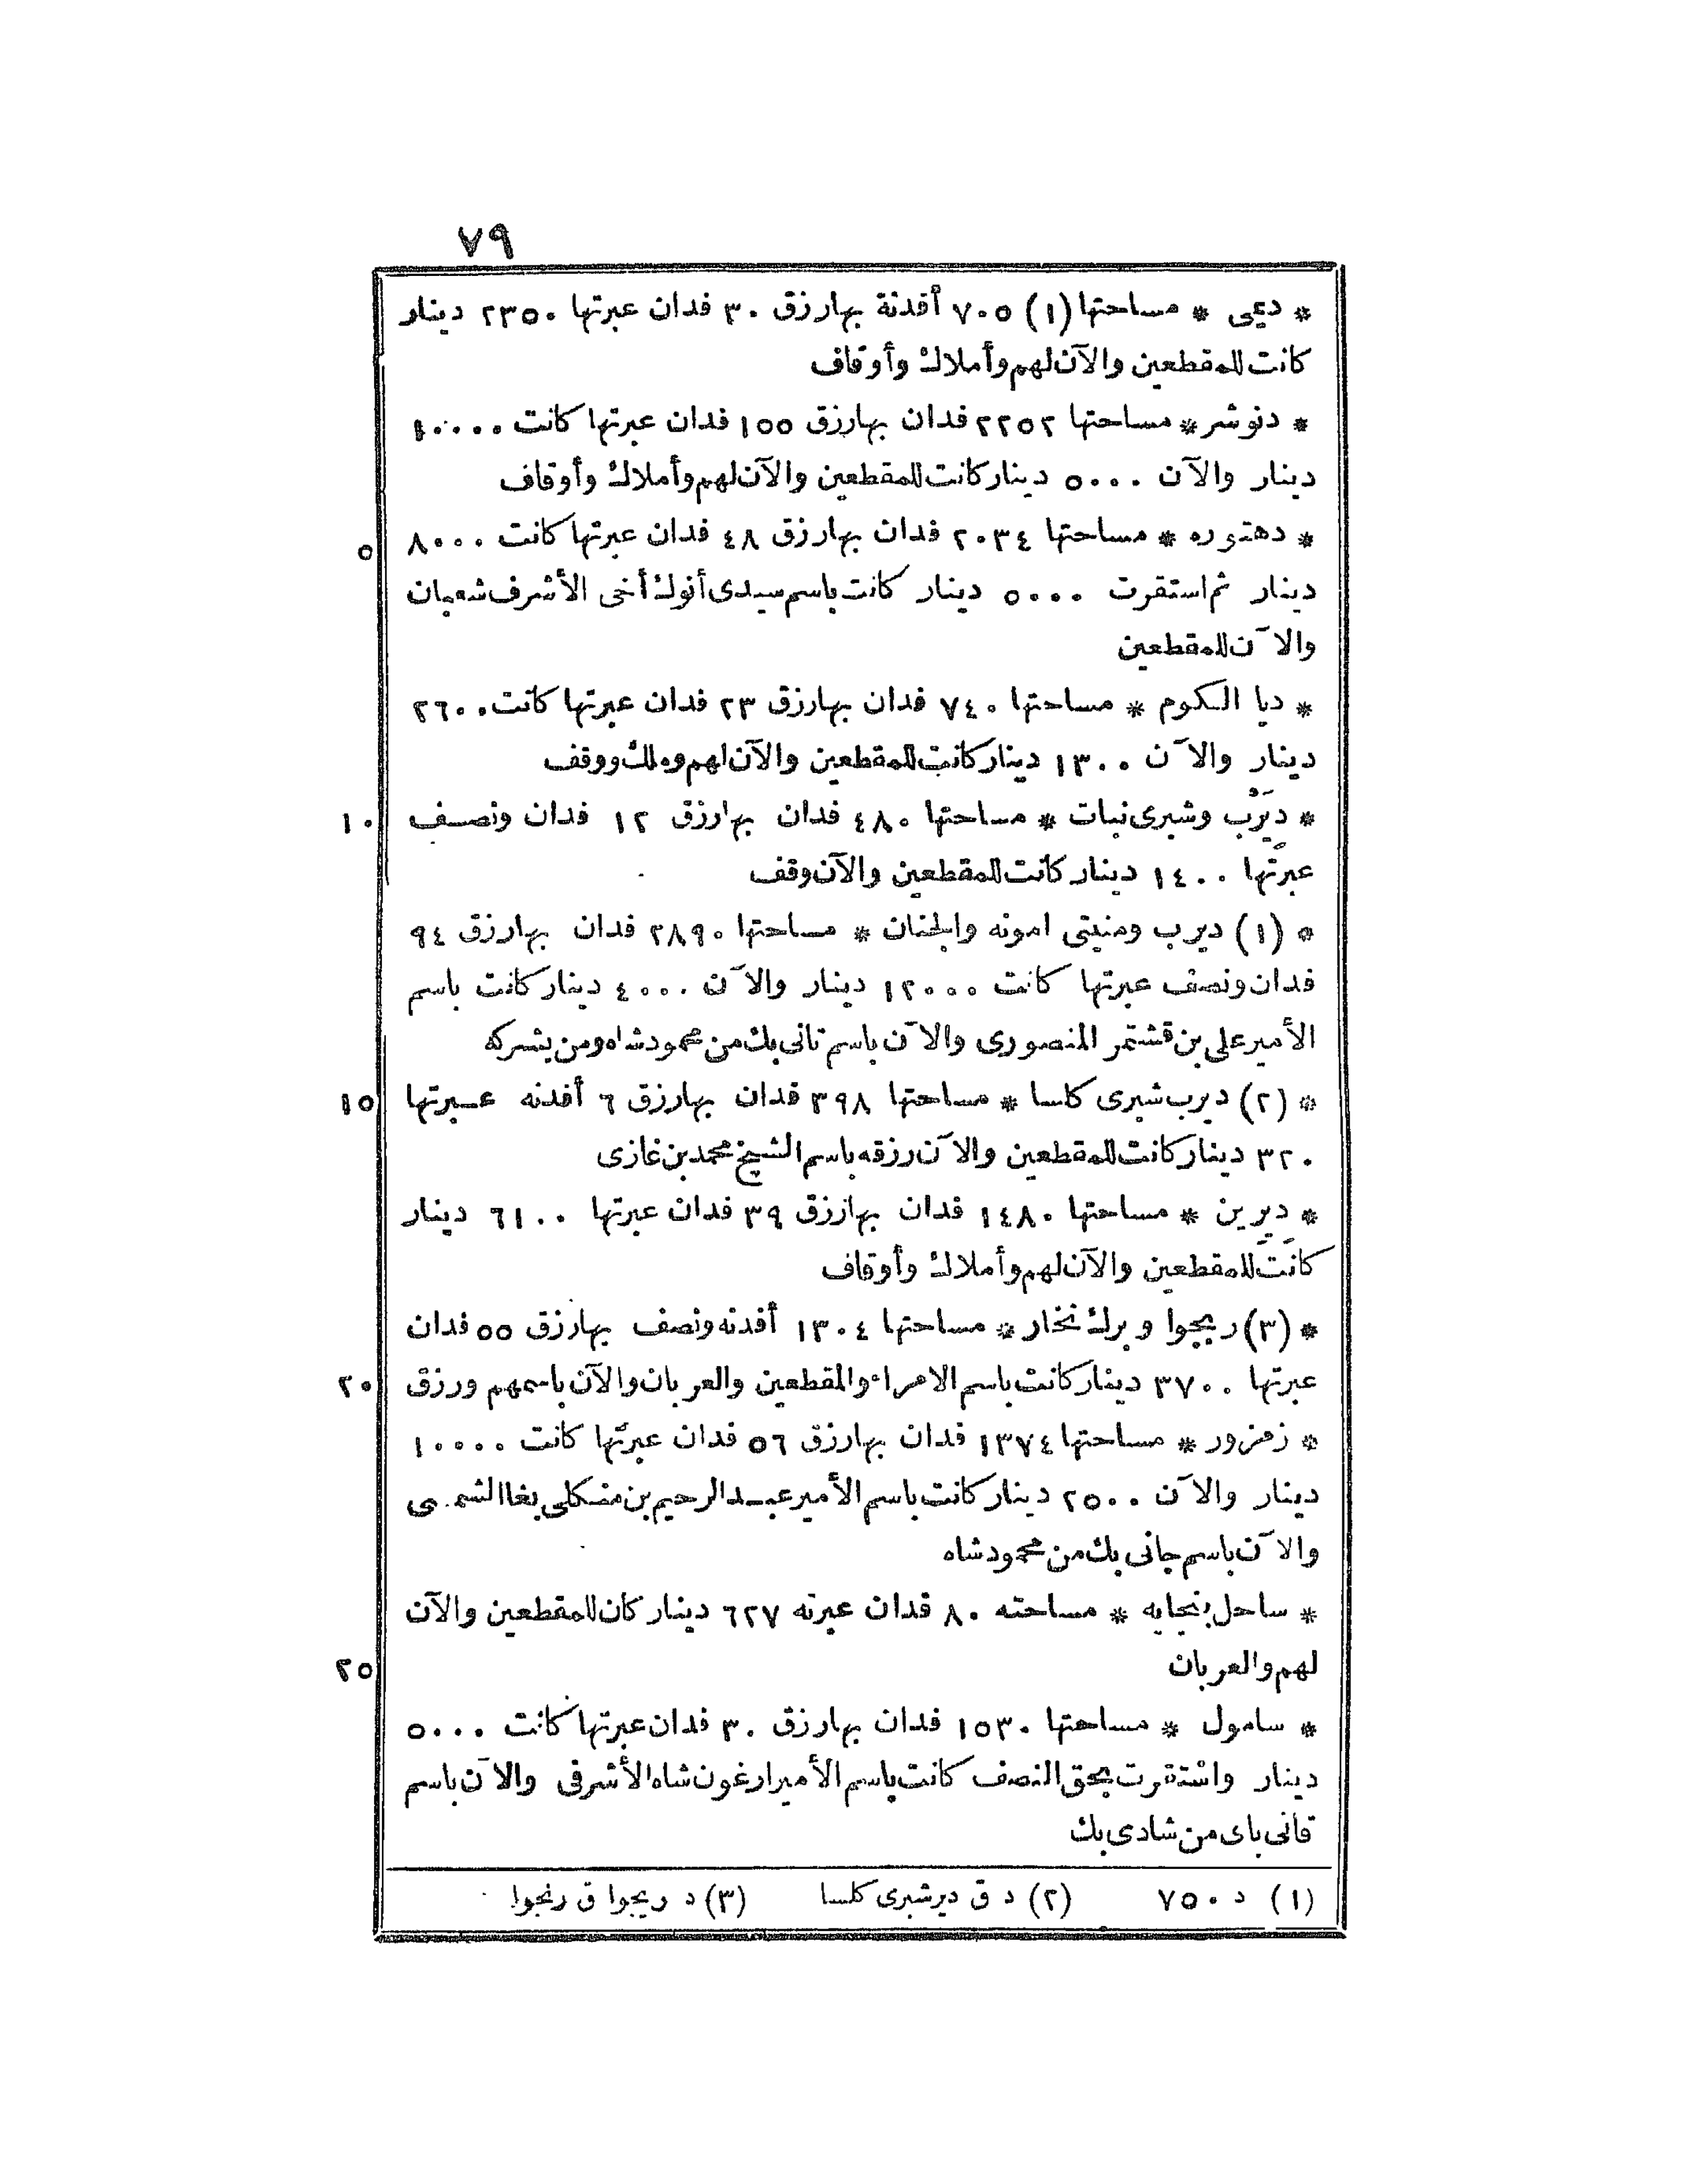 ٧٩
* دعمى * مساحتها (١) ٧٠٥ أفدنة بها رزق ٣٠ فدان عبرتها ٢٣٥٠ دينار
كانت للمقطعين والآن لهم وأملاك وأوقاف
* دنوشر * مساحتها ٢٢٥٢ فدان بها رزق ١٥٥ فدان عبرتها كانت ١٠٠٠٠
دينار والآن ٥٠٠٠ دينار كانت للمقطعين والآن لهم وأملاك وأوقاف
* دهتوره * مساحتها ٢٠٣٤ فدان بها رزق ٤٨ فدان عبرتها كانت ٨٠٠٠
٥
دينار ثم استقرت ٥٠٠٠ دينار كانت باسم سيدى أنوك أخى الأشرف شعبان
والآن للمقطعين
* ديا الكوم * مساحتها ٧٤٠ فدان بها رزق ٢٣ فدان عبرتها كانت ٢٦٠٠
دينار والآن ١٣٠٠ دينار كانت للمقطعين والآن لهم وملك ووقف
* ديرب وشبرى نبات * مساحتها ٤٨٠ فدان بها رزق ١٢ فدان ونصف
١٠
عبرتها ١٤٠٠ دينار كانت للمقطعين والآن وقف
* (١) ديرب ومنيتى امونه والجنان * مساحتها ٢٨٩٠ فدان بها رزق ٩٤
فدان ونصف عبرتها كانت ١٢٠٠٠ دينار والآن ٤٠٠٠ دينار كانت باسم
الأمير على بن قشتمر المنصورى والآن باسم تانى بك من محمود شاه ومن يشركه
* (٢) ديرب شبرى كاسا * مساحتها ٣٩٨ فدان بها رزق ٦ أفدنه عبرتها
١٥
٣٢٠ دينار كانت للمقطعين والآن رزقه باسم الشيخ محمد بن غازى
* ديرين * مساحتها ١٤٨٠ فدان بها رزق ٣٩ فدان عبرتها ٦١٠٠ دينار
كانت للمقطعين والآن لهم وأملاك وأوقاف
* (٣) ريجوا وبرك نخار * مساحتها ١٣٠٤ أفدنه ونصف بها رزق ٥٥ فدان
عبرتها ٣٧٠٠ دينار كانت باسم الامراء والمقطعين والعربان والآن باسمهم ورزق
٢٠
* زمزور * مساحتها ١٣٧٤ فدان بها رزق ٥٦ فدان عبرتها كانت ١٠٠٠٠
دينار والآن ٢٥٠٠ دينار كانت باسم الأمير عبد الرحيم بن منكلى بغا الشمسى
والآن باسم جانى بك من محمود شاه
* ساحل بنجايه * مساحته ٨٠ فدان عبرته ٦٢٧ دينار كان للمقطعين والآن
لهم والعربان
٢٥
* سامول * مساحتها ١٥٣٠ فدان بها رزق ٣٠ فدان عبرتها كانت ٥٠٠٠
دينار واستقرت بحق النصف كانت باسم الأمير ارغون شاه الأشرفى والآن باسم
قانى باى من شادى بك
(١) د ٧٥٠ (٢) د ق دير شبرى كلسا (٣) د ريجوا ق رنجوا